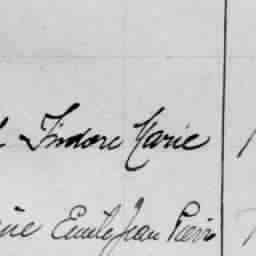 Isidore Marie
Emile Jean Pierre